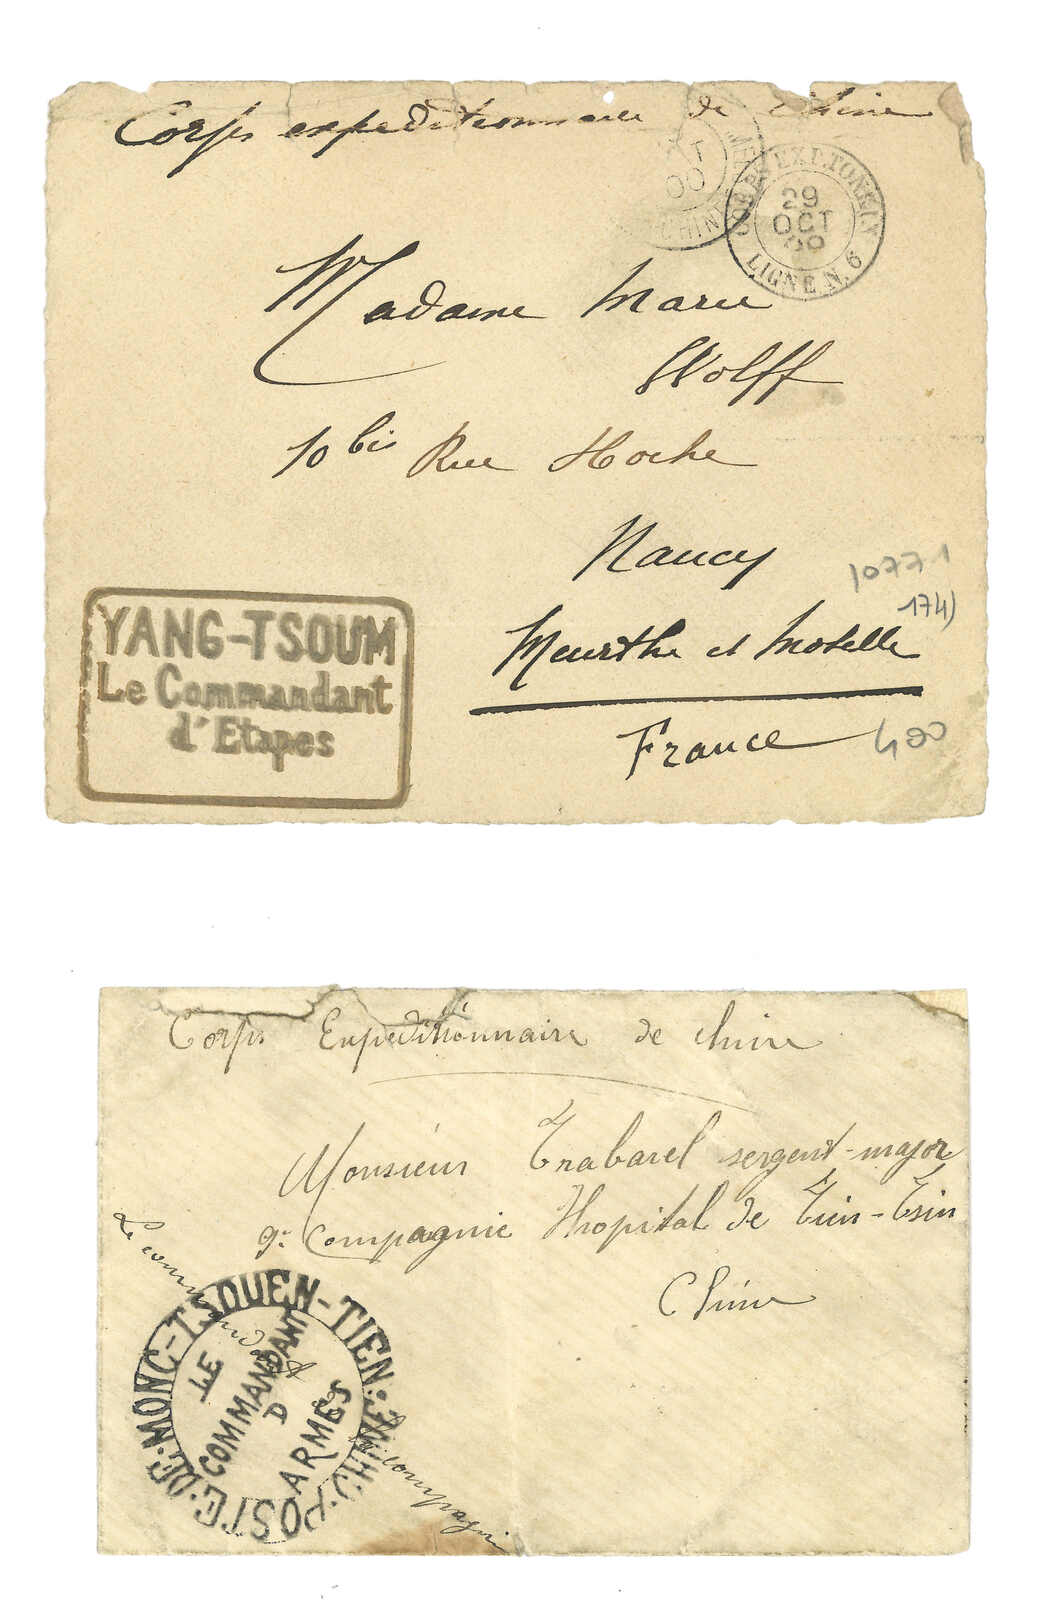 Corps expeditionnaire de Chine
OCT
00
CHINE
CORR. EXP. TONKIN
29
OCT
00
LIGNE N. 6
Madame Marie
Wolff
10 bis Rue Hoche
Nancy
10771
174)
Meurthe et Moselle
France
400
YANG-TSOUM
Le Commandant
d'Etapes
Corps Expeditionnaire de Chine
Monsieur Trabarel sergent-major
9e Compagnie Hopital de Tien-Tsin
Chine
Le commandant de la compagnie
POSTE·DE·MONC-TSOUEN-TIEN·CHINE·
LE
COMMANDANT
D
ARMES